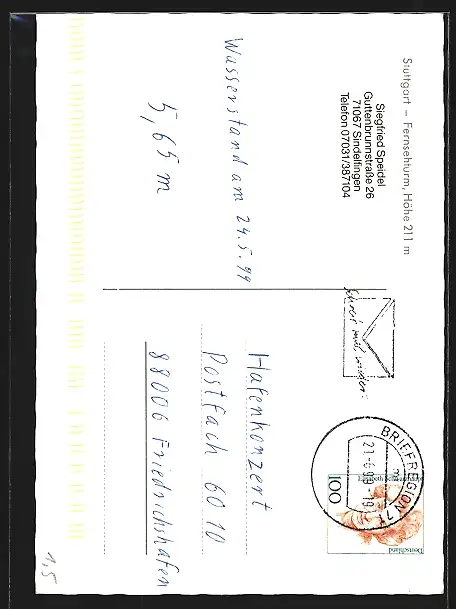 Stuttgart – Fernsehturm, Höhe 211 m
Siegfried Speidel
Guttenbrunnstraße 26
71067 Sindelfingen
Telefon 07031/387104
Wasserstand am 24.5.99
5,65 m
Schreib mal wieder
BRIEFREGION 7
Deutschland
100
Hafenkonzert
Postfach 60 10
88006 Friedrichshafen
1,5